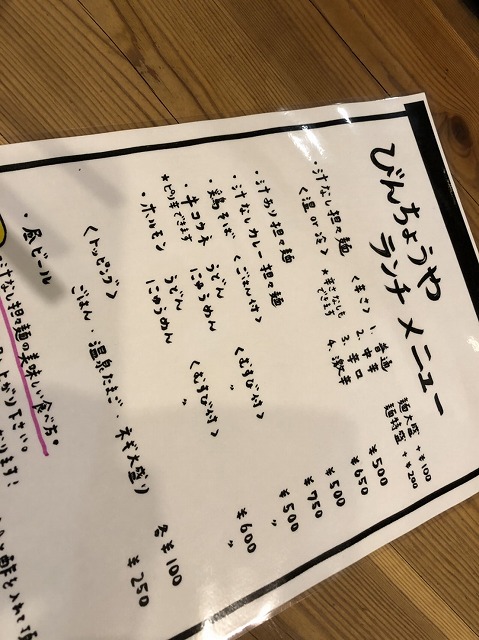 びんちょうや
ランチメニュー
麺大盛 +¥100
麺特盛 +¥200
・汁なし担々麺 <辛さ> 1. 普通 ¥500
<温 or 冷> ※辛さなしもできます 2. 中辛 ¥650
3. 辛口
4. 激辛
・汁あり担々麺 ¥500
・汁なしカレー担々麺 <ごはん付> ¥750
・鶏そば ¥500
・牛コウネ うどん <むすび付> 〃
※ピリ辛できます にゅうめん 〃
・ホルモン うどん <むすび付> ¥600
にゅうめん 〃 〃
<トッピング>
ごはん・温泉たまご・ネギ大盛り 各¥100
・昼ビール ¥250
汁なし担々麺の美味しい食べ方。
下さい。